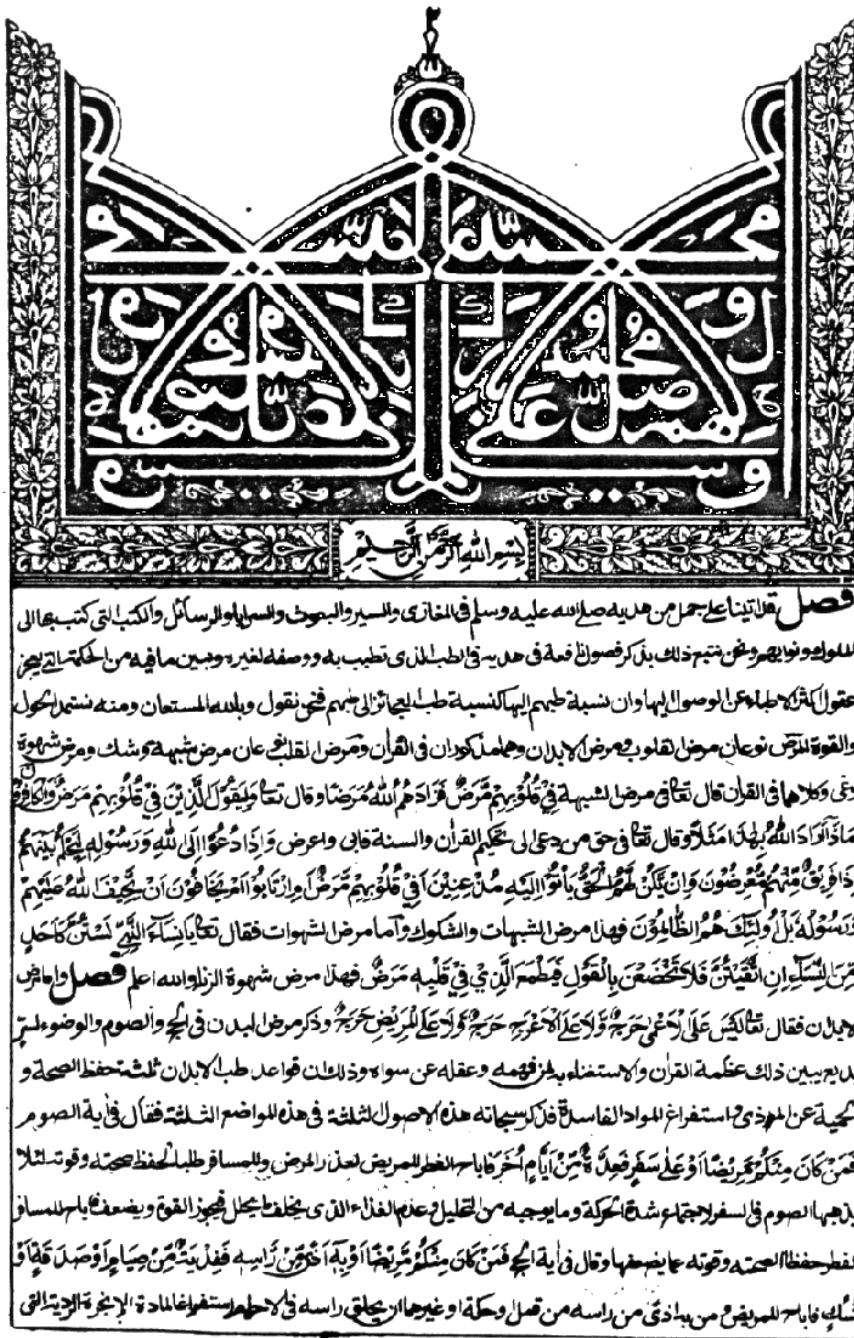 بسم الله الرحمن الرحيم
فصل قد اتينا على جمل من هديه صلى الله عليه وسلم فى المغازى والسير والبعوث والسرايا والرسائل والكتب التى كتب بها الى
الملوك ونوابهم ونحن نتبع ذلك بذكر فصول نافعة فى هديه فى الطب الذى تطبب به ووصفه لغيره ونبين ما فيه من الحكمة التى يعجز
عقول اكثر الاطباء عن الوصول اليها وان نسبة طبهم اليها كنسبة طب العجائز الى طبهم فنحن نقول وبالله المستعان ومنه نستمد الحول
والقوة المرض نوعان مرض القلوب ومرض الابدان وهما مذكوران فى القرآن ومرض القلب نوعان مرض شبهة وشك ومرض شهوة
وغى وكلاهما فى القرآن قال تعالى فى مرض الشبهة فِيْ قُلُوْبِهِمْ مَّرَضٌ فَزَادَهُمُ اللهُ مَرَضًا وقال تعالى وَلِيَقُوْلَ الَّذِيْنَ فِيْ قُلُوْبِهِمْ مَرَضٌ وَّالْكَافِرُوْنَ
مَاذَا اَرَادَ اللهُ بِهٰذَا مَثَلًا وقال تعالى فى حق من دعى الى تحكيم القرآن والسنة فابى واعرض وَاِذَا دُعُوْا اِلَى اللهِ وَرَسُوْلِهٖ لِيَحْكُمَ بَيْنَهُمْ
اِذَا فَرِيْقٌ مِّنْهُمْ مُّعْرِضُوْنَ وَاِنْ يَّكُنْ لَّهُمُ الْحَقُّ يَأْتُوْا اِلَيْهِ مُذْعِنِيْنَ اَفِيْ قُلُوْبِهِمْ مَّرَضٌ اَمِ ارْتَابُوْا اَمْ يَخَافُوْنَ اَنْ يَّحِيْفَ اللهُ عَلَيْهِمْ
وَرَسُوْلُهٗ بَلْ اُولٰئِكَ هُمُ الظَّالِمُوْنَ فهذا مرض الشبهات والشكوك واما مرض الشهوات فقال تعالى يَا نِسَاءَ النَّبِيِّ لَسْتُنَّ كَاَحَدٍ
مِّنَ النِّسَاءِ اِنِ اتَّقَيْتُنَّ فَلَا تَخْضَعْنَ بِالْقَوْلِ فَيَطْمَعَ الَّذِيْ فِيْ قَلْبِهٖ مَرَضٌ فهذا مرض شهوة الزنا والله اعلم فصل واما مرض
الابدان فقال تعالى لَيْسَ عَلَى الْاَعْمٰى حَرَجٌ وَّلَا عَلَى الْاَعْرَجِ حَرَجٌ وَّلَا عَلَى الْمَرِيْضِ حَرَجٌ وذكر مرض البدن فى الحج والصوم والوضوء لسر
بديع يبين ذلك عظمة القرآن والاستغناء به لمن فهمه وعقله عن سواه وذلك ان قواعد طب الابدان ثلثة حفظ الصحة و
الحمية عن المؤذى واستفراغ المواد الفاسدة فذكر سبحانه هذه الاصول الثلثة فى هذه المواضع الثلثة فقال فى آية الصوم
فَمَنْ كَانَ مِنْكُمْ مَّرِيْضًا اَوْ عَلٰى سَفَرٍ فَعِدَّةٌ مِّنْ اَيَّامٍ اُخَرَ فاباح الفطر للمريض لعذر المرض وللمسافر طلبا لحفظ صحته وقوته لئلا
يذهبها الصوم فى السفر لاجتماع شدة الحركة وما يوجبه من التحليل وعدم الغذاء الذى يخلف ما تحلل فتخور القوة وتضعف فاباح للمسافر
الفطر حفظا لصحته وقوته عما يضعفها وقال فى آية الحج فَمَنْ كَانَ مِنْكُمْ مَّرِيْضًا اَوْ بِهٖ اَذًى مِّنْ رَّاْسِهٖ فَفِدْيَةٌ مِّنْ صِيَامٍ اَوْ صَدَقَةٍ اَوْ
نُسُكٍ فاباح للمريض ومن به اذى من راسه من قمل او حكة او غيرهما ان يحلق راسه فى الاحرام استفراغا لمادة الابخرة الردية التى